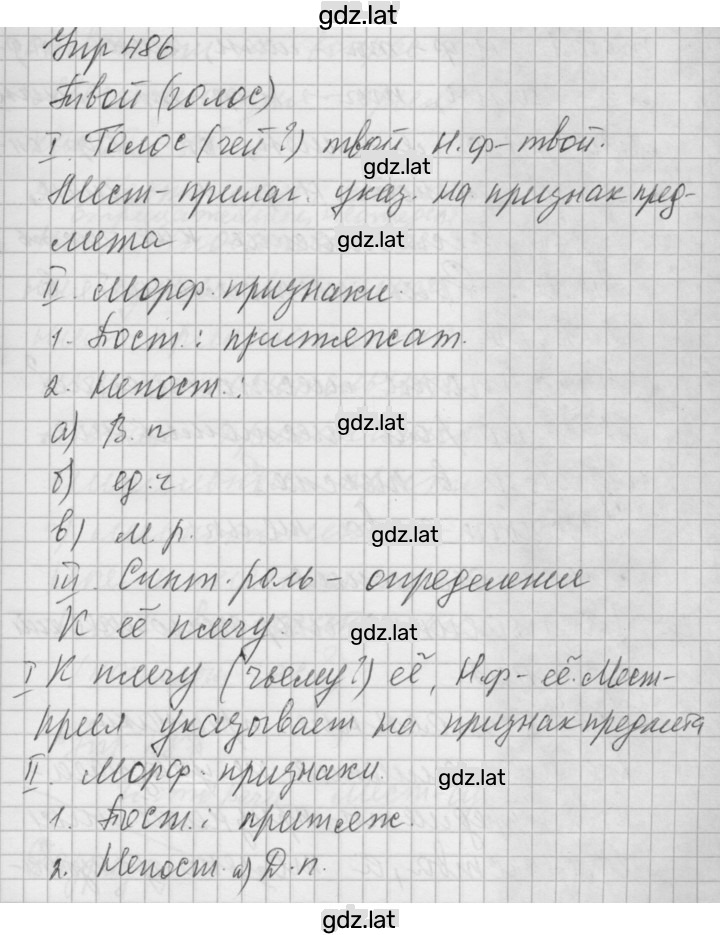 gdz.lat
Упр 486
Твой (голос)
I. Голос (чей?) твой. Н.ф-твой.
gdz.lat
Мест-прилаг. указ. на признак пред-
мета
gdz.lat
II. Морф. признаки.
1. Пост.: притяжат.
2. Непост.:
а) В.п
gdz.lat
б) ед.ч
в) м.р.
gdz.lat
III. Синт. роль - определение
К её плечу.
gdz.lat
I К плечу (чьему?) её, Н.ф- её. Мест-
прил указывает на признак предмета
II. Морф. признаки.
gdz.lat
1. Пост.: притяж.
2. Непост. а) Д.п.
gdz.lat